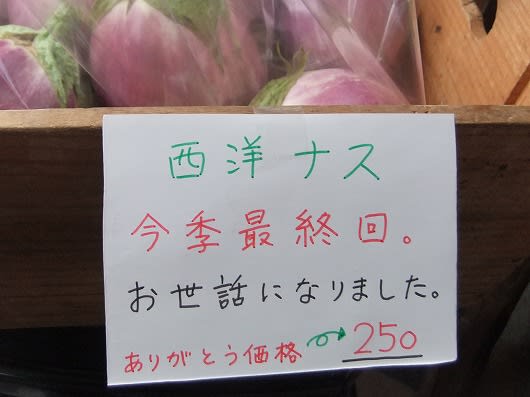 西洋ナス
今季最終回。
お世話になりました。
ありがとう価格 → 250